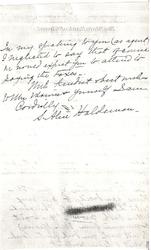 In my speaking to you (as agent)
I neglected to say that of course
we would expect you to attend to
paying the Taxes.
With kindest & best wishes
to Mrs. & yourself I am
Cordially
S. Alice Haldeman.